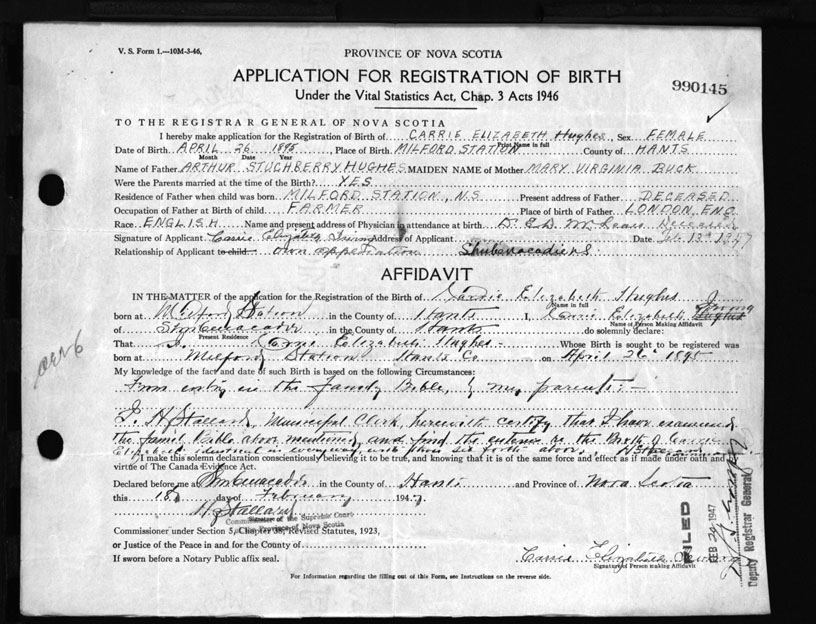 V. S. Form 1.—10M-3-46,
PROVINCE OF NOVA SCOTIA
APPLICATION FOR REGISTRATION OF BIRTH
990145
Under the Vital Statistics Act, Chap. 3 Acts 1946
TO THE REGISTRAR GENERAL OF NOVA SCOTIA
I hereby make application for the Registration of Birth of CARRIE ELIZABETH Hughes Sex FEMALE
Print Name in full
Date of Birth APRIL 26 1895 Place of Birth MILFORD STATION County of HANTS
Month Date Year
Name of Father ARTHUR STUCHBERRY HUGHES MAIDEN NAME of Mother MARY VIRGINIA BUCK
Were the Parents married at the time of Birth? YES
Residence of Father when child was born MILFORD STATION, N.S Present address of Father DECEASED
Occupation of Father at Birth of child FARMER Place of birth of Father LONDON, ENG
Race ENGLISH Name and present address of Physician in attendance at birth
Signature of Applicant Carrie Elizabeth Address of Applicant Date Feb 13th 1947
Relationship of Applicant to child own application Shubenacadie N.S
AFFIDAVIT
IN THE MATTER of the application for the Registration of the Birth of Carrie Elizabeth Hughes
Name in full
born at Milford Station in the County of Hants I, Carrie Elizabeth Hughes
Name of Person Making Affidavit
of Shubenacadie in the County of Hants do solemnly declare:
Present Residence
That I, Carrie Elizabeth Hughes Whose Birth is sought to be registered was
born at Milford Station Hants Co on April 26 1895
My knowledge of the fact and date of such Birth is based on the following Circumstances:
From entry in the family Bible, of my parents:—
I. H Stallard, Municipal Clerk, herewith certify that I have examined
the family Bible above mentioned, and find the entrance re the Birth of Carrie
Elizabeth, identical in every way with those set forth above,
I make this solemn declaration conscientiously believing it to be true, and knowing that it is of the same force and effect as if made under oath and by
virtue of The Canada Evidence Act.
Declared before me at Shubenacadie in the County of Hants and Province of Nova Scotia
this 18 day of February 1947
Commissioner of the Supreme Court
Province of Nova Scotia
Commissioner under Section 5, Chapter 38, Revised Statutes, 1923,
or Justice of the Peace in and for the County of
If sworn before a Notary Public affix seal.
Carrie Elizabeth
Signature of Person making Affidavit
For Information regarding the filling out of this Form, see Instructions on the reverse side.
FILED
FEB 24 1947
Deputy Registrar General